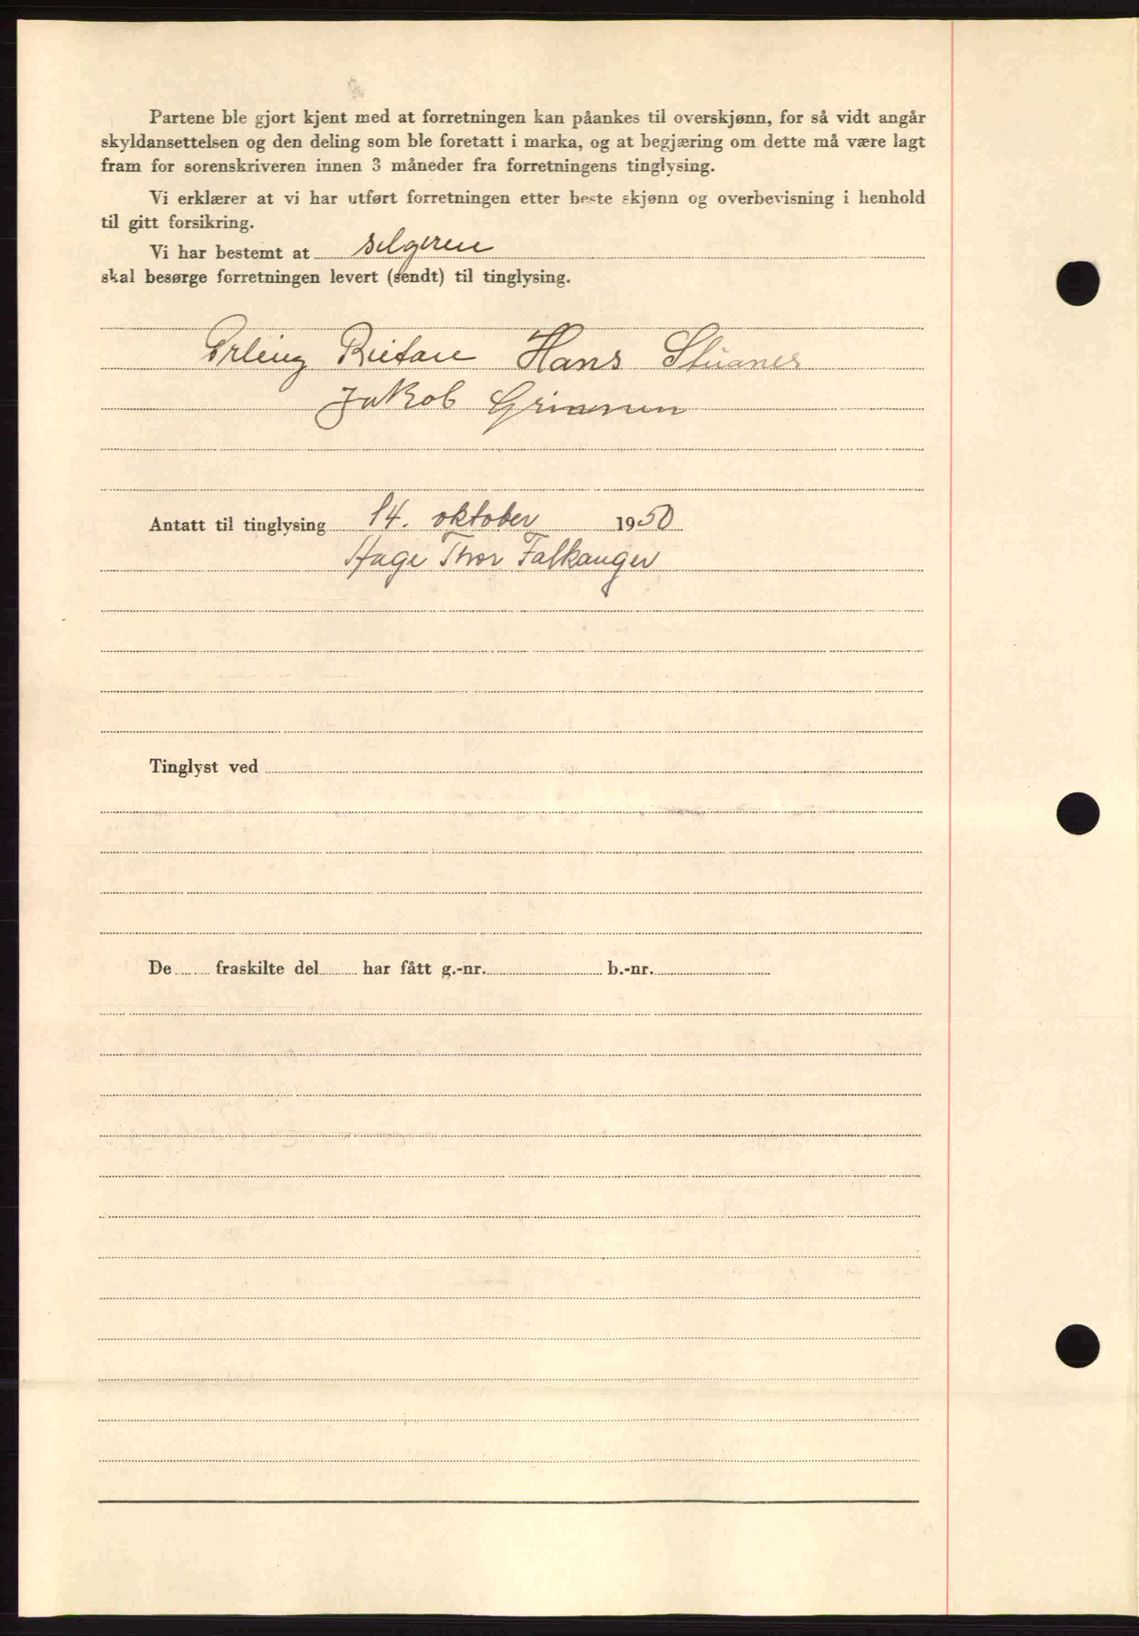 Partene ble gjort kjent med at forretningen kan påankes til overskjønn, for så vidt angår
skyldansettelsen og den deling som ble foretatt i marka, og at begjæring om dette må være lagt
fram for sorenskriveren innen 3 måneder fra forretningens tinglysing.
Vi erklærer at vi har utført forretningen etter beste skjønn og overbevisning i henhold
til gitt forsikring.
Vi har bestemt at selgeren
skal besørge forretningen levert (sendt) til tinglysing.
Erling Hans Stuanes
Jakob
Antatt til tinglysing 14. oktober 1950
Aage Thor Falkanger
Tinglyst ved
De fraskilte del har fått g.-nr. b.-nr.